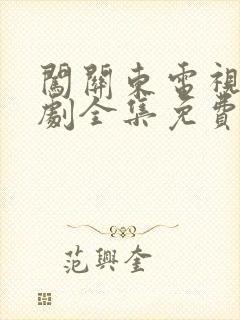 闖關東電視
劇全集免費
范興奎